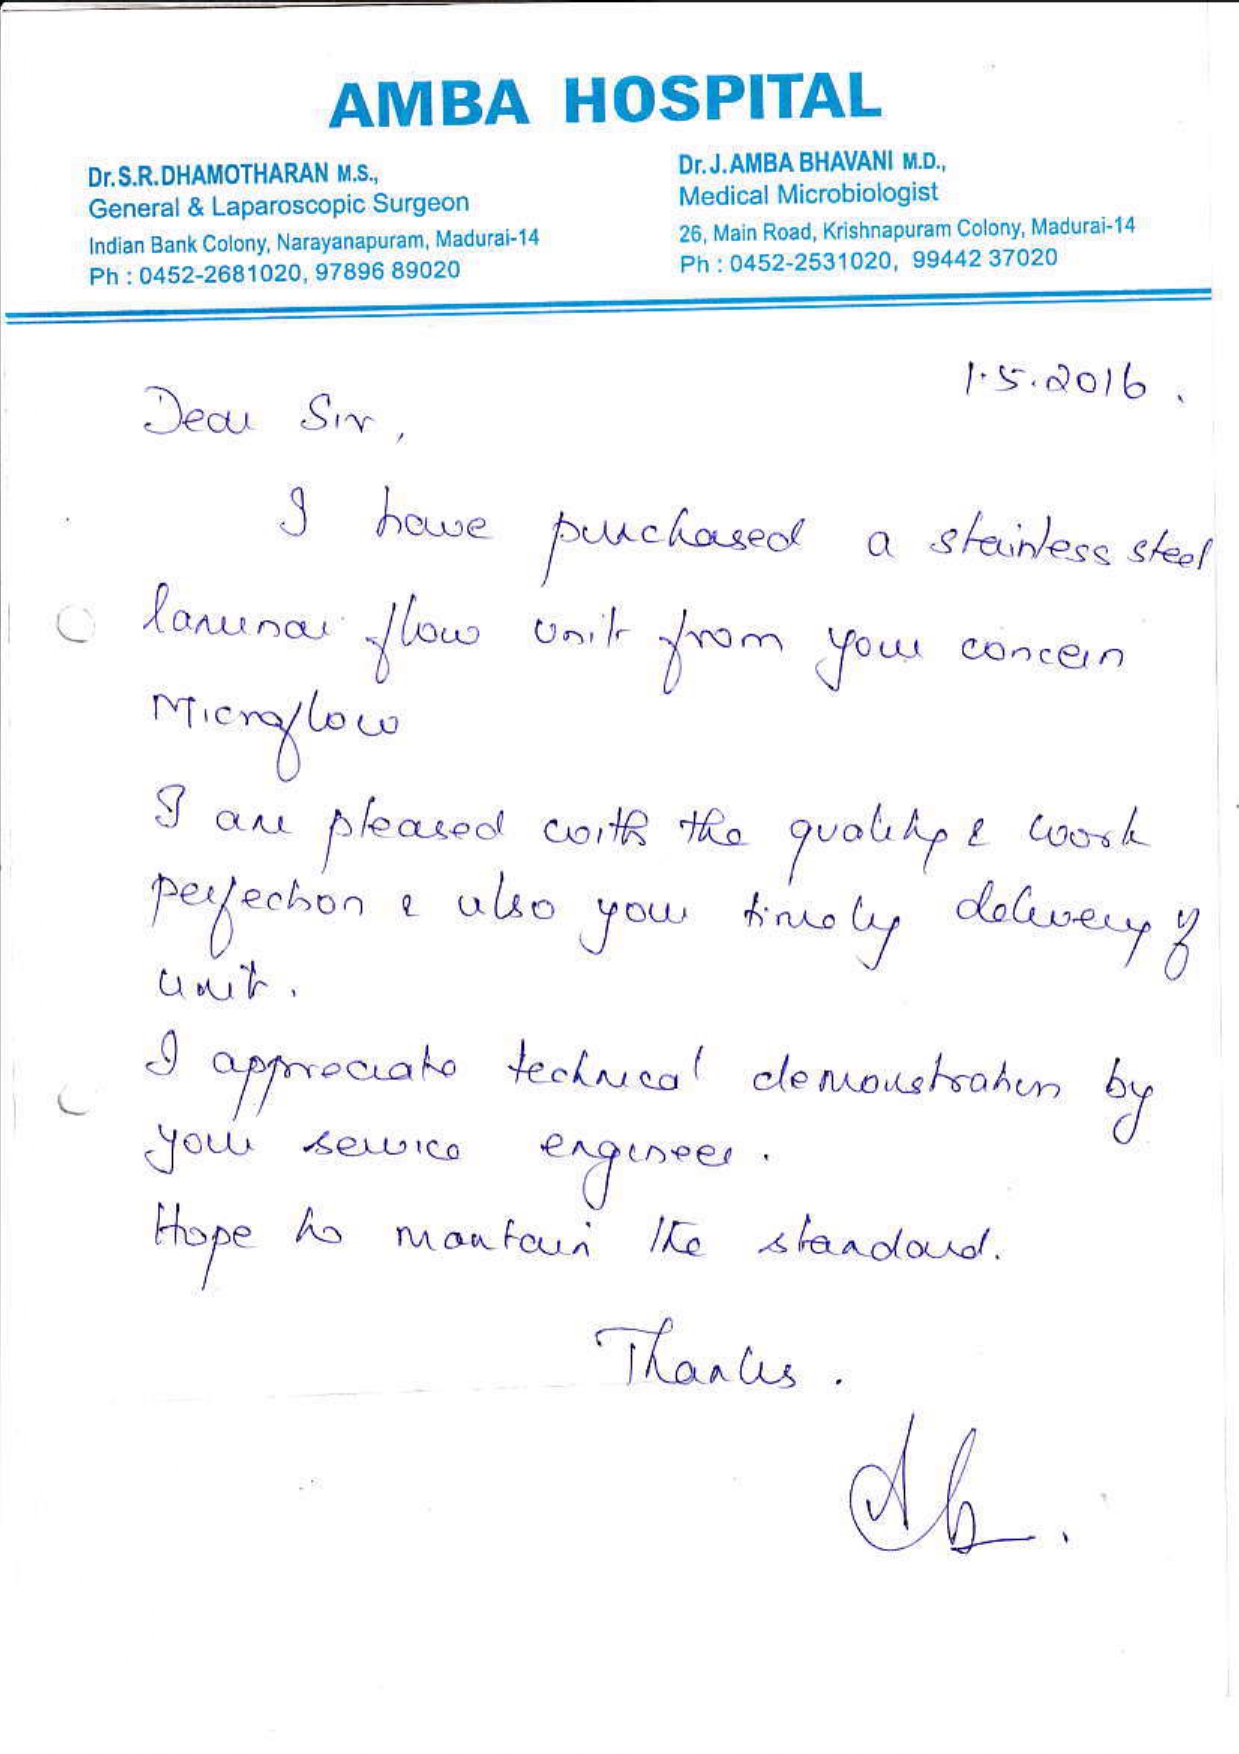 AMBA HOSPITAL
Dr.S.R.DHAMOTHARAN M.S.,
General & Laparoscopic Surgeon
Indian Bank Colony, Narayanapuram, Madurai-14
Ph : 0452-2681020, 97896 89020
Dr.J.AMBA BHAVANI M.D.,
Medical Microbiologist
26, Main Road, Krishnapuram Colony, Madurai-14
Ph : 0452-2531020, 99442 37020
1.5.2016.
Dear Sir,
I have purchased a stainless steel
laminar flow unit from your concern
Microflow
I am pleased with the quality & work
perfection & also your timely delivery of
unit.
I appreciate technical demonstration by
your service engineer.
Hope to mantain the standard.
Thanks.